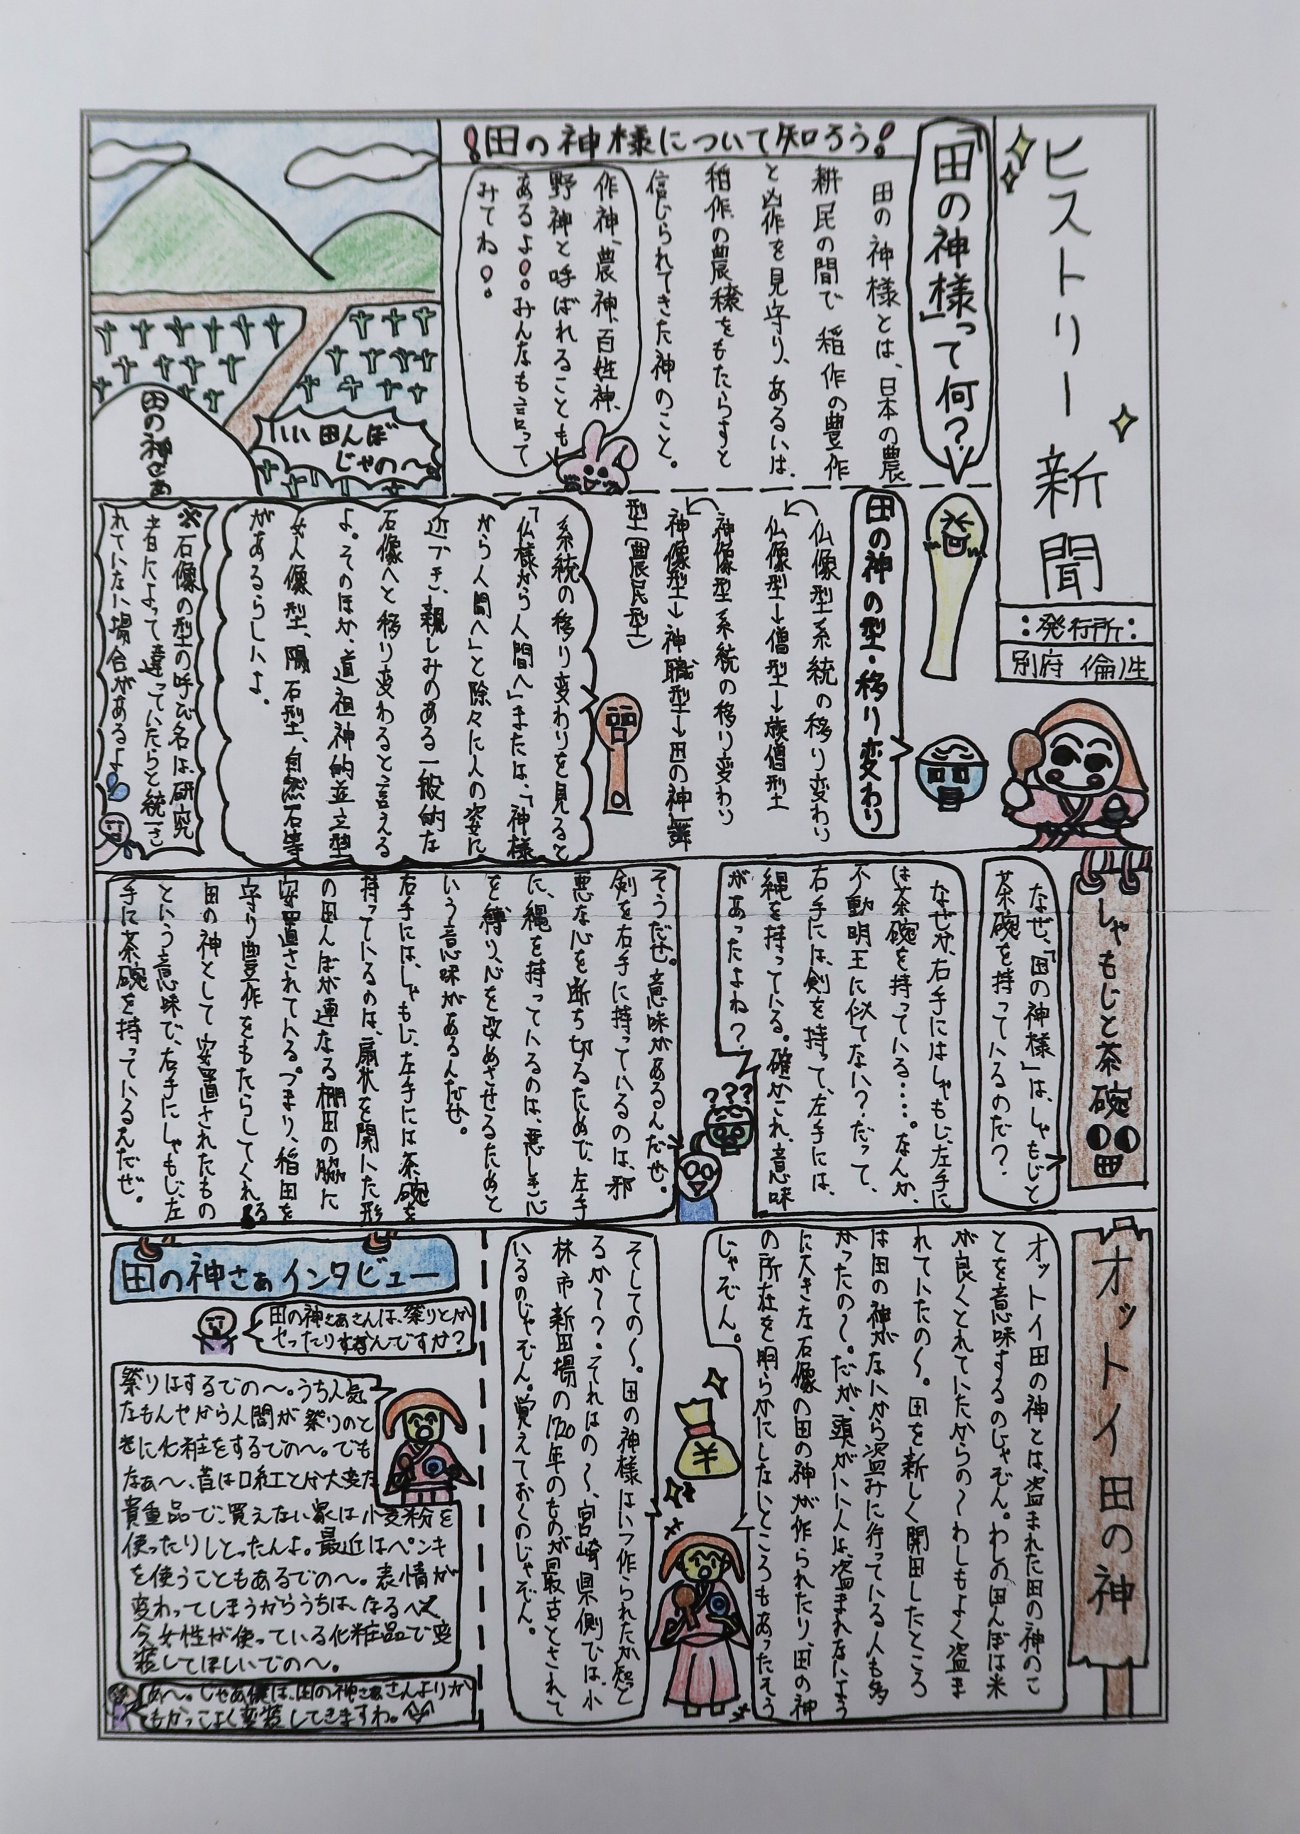 ヒストリー新聞
:発行所:
別府 倫性
!田の神様について知ろう!
「田の神様」って何?
田の神様とは、日本の農
耕民の間で稲作の豊作
と凶作を見守り、あるいは、
稲作の農穣をもたらすと
信じられてきた神のこと。
作神、農神、百姓神、
野神と呼ばれることも
あるよ!!みんなも言って
みてね!!
いい田んぼ
じゃの〜
田の神さぁ
田の神の型・移り変わり
仏像型系統の移り変わり
仏像型→僧型→旅僧型
神像型系統の移り変わり
神像型→神職型→田の神舞
型(農民型)
系統の移り変わりを見ると
「仏様から人間へ」または、「神様
から人間へ」と除々に人の姿に
近づき、親しみのある一般的な
石像へと移り変わると言える
よ。そのほか、道祖神的並立型
女人像型、陽石型、自然石等
があるらしいよ。
※石像の型の呼び名は、研究
者によって違っていたらと統一さ
れていない場合があるよ
しゃもじと茶碗
なぜ、「田の神様」は、しゃもじと
茶碗を持っているのだ?
なぜか、右手にはしゃもじ、左手に
は茶碗を持っている....。なんか、
不動明王に似てない?だって、
右手には、剣を持って、左手には、
縄を持っている。確かこれ、意味
があったよね?
???
そうだぜ。意味があるんだぜ。
剣を右手に持っているのは、邪
悪な心を断ち切るためで、左手
に、縄を持っているのは、悪しき心
を縛り、心を改めさせるためと
いう意味があるんだぜ。
右手にはしゃもじ、左手には茶碗を
持っているのは、扇状を開いた形
の田んぼが連なる棚田の脇に
安置されている。つまり、稲田を
守り豊作をもたらしてくれる
田の神として安置されたもの
という意味で、右手にしゃもじ、左
手に茶碗を持っているんだぜ。
オットイ田の神
オットイ田の神とは、盗まれた田の神のこ
とを意味するのじゃぞん。わしの田んぼは米
が良くとれていたからの〜わしもよく盗ま
れていたの〜。田を新しく開田したところ
は田の神がないから盗みに行っている人も多
かったの〜。だが、頭がいい人は、盗まれないよう
に大きな石像の田の神が作られたり、田の神
の所在を明らかにしないところもあったそう
じゃぞん。
¥
そしての〜。田の神様はいつ作られたか知っと
るか〜?。それはの〜、宮崎県側では、小
林市新田場の1720年のものが最古とされて
いるのじゃぞん。覚えておくのじゃぞん。
田の神さぁインタビュー
田の神さぁさんは、祭りとか
やったりするんですか?
祭りはするでの〜。うち人気
なもんやから人間が祭りのと
きに化粧をするでの〜。でも
なぁ〜、昔は口紅とか大変な
貴重品で、買えない家は小麦粉を
使ったりしとったんよ。最近はペンキ
を使うこともあるでの〜。表情が
変わってしまうからうちは、なるべく、
今女性が使っている化粧品で変
装してほしいでの〜。
あ〜。じゃあ僕は、田の神さぁさんよりか
もかっこよく変装してきますわ。